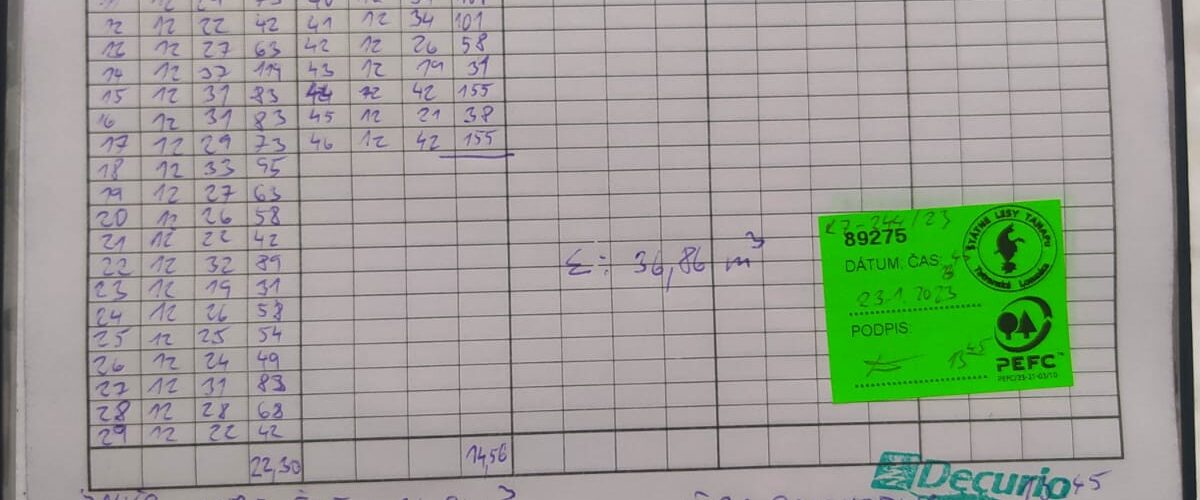 12 12 22 42 41 12 34 101
13 12 27 63 42 12 26 58
14 12 37 119 43 12 19 31
15 12 31 83 44 12 42 155
16 12 31 83 45 12 21 38
17 12 29 73 46 12 42 155
18 12 33 95
19 12 27 63
20 12 26 58
21 12 22 42
22 12 32 89
23 12 19 31
24 12 26 58
25 12 25 54
26 12 24 49
27 12 31 83
28 12 28 68
29 12 22 42
22,30 14,56
Σ = 36,86 m³
K7-344/23
89275
DÁTUM, ČAS:
23.1.2023
PODPIS:
13 45
ŠTÁTNE LESY TANAPU
Tatranská Lomnica
PEFC™
Decurio
45